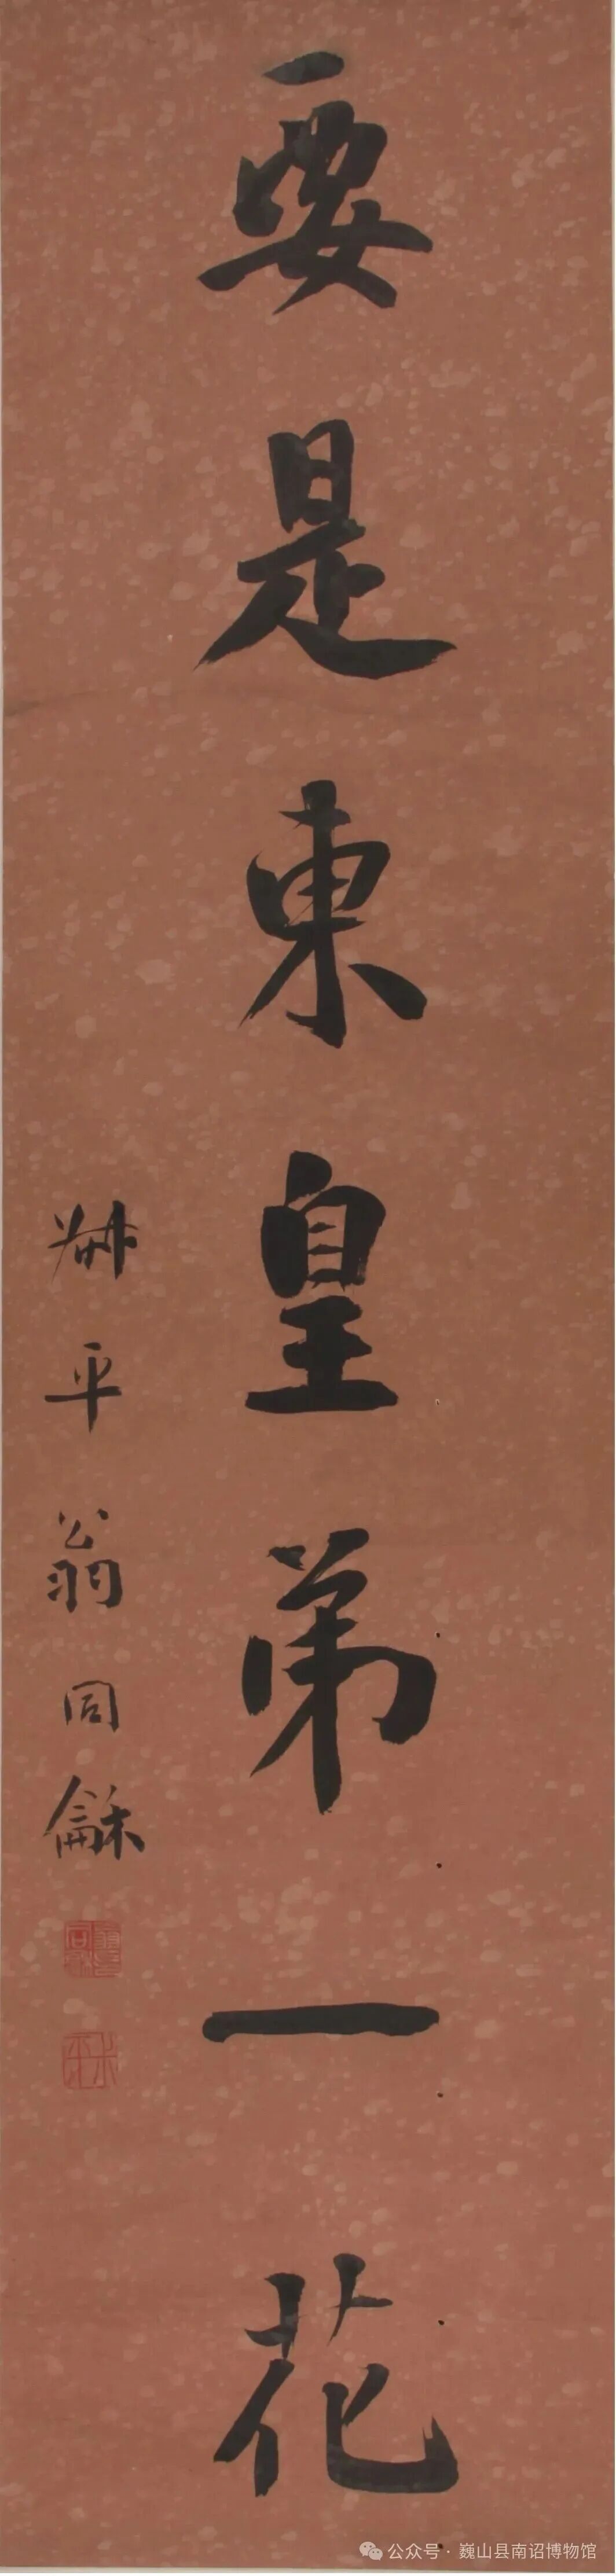 要是東皇弟一花
叔平翁同龢
公众号 · 巍山县南诏博物馆